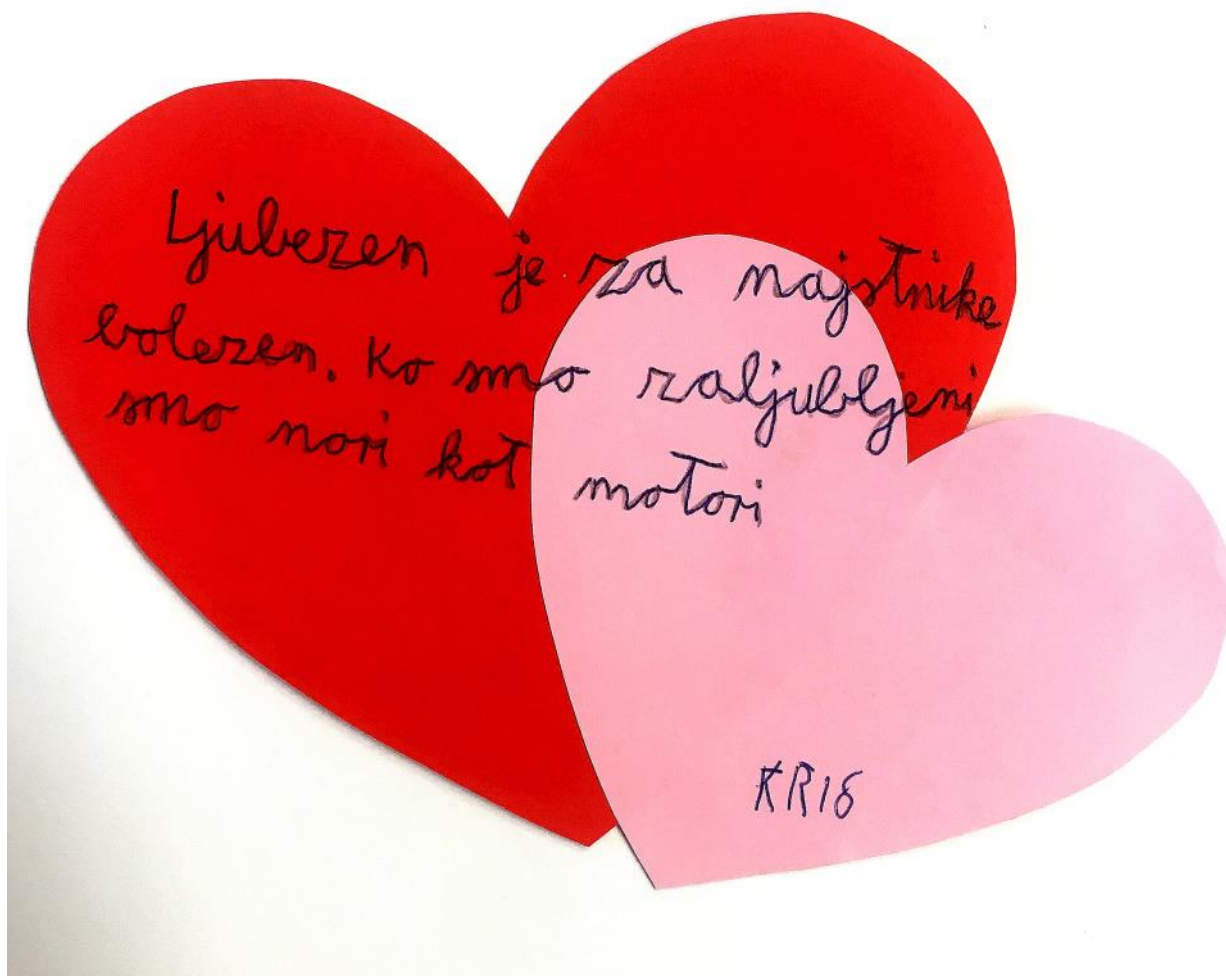 Ljubezen je za najstnike
bolezen. Ko smo zaljubljeni
smo nori kot motori
KRIS